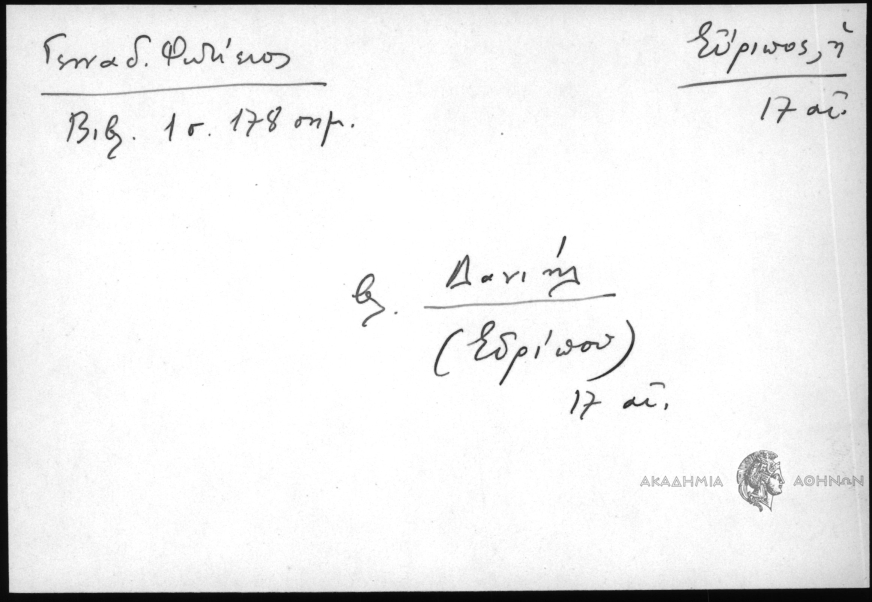 Γενναδ. Φωτίειος
Εὔριπος, ἡ
17 αἰ.
Βιβλ. 1 σ. 178 σημ.
βλ. Δανιήλ
(Εὐρίπου)
17 αἰ.
ΑΚΑΔΗΜΙΑ ΑΘΗΝΩΝ